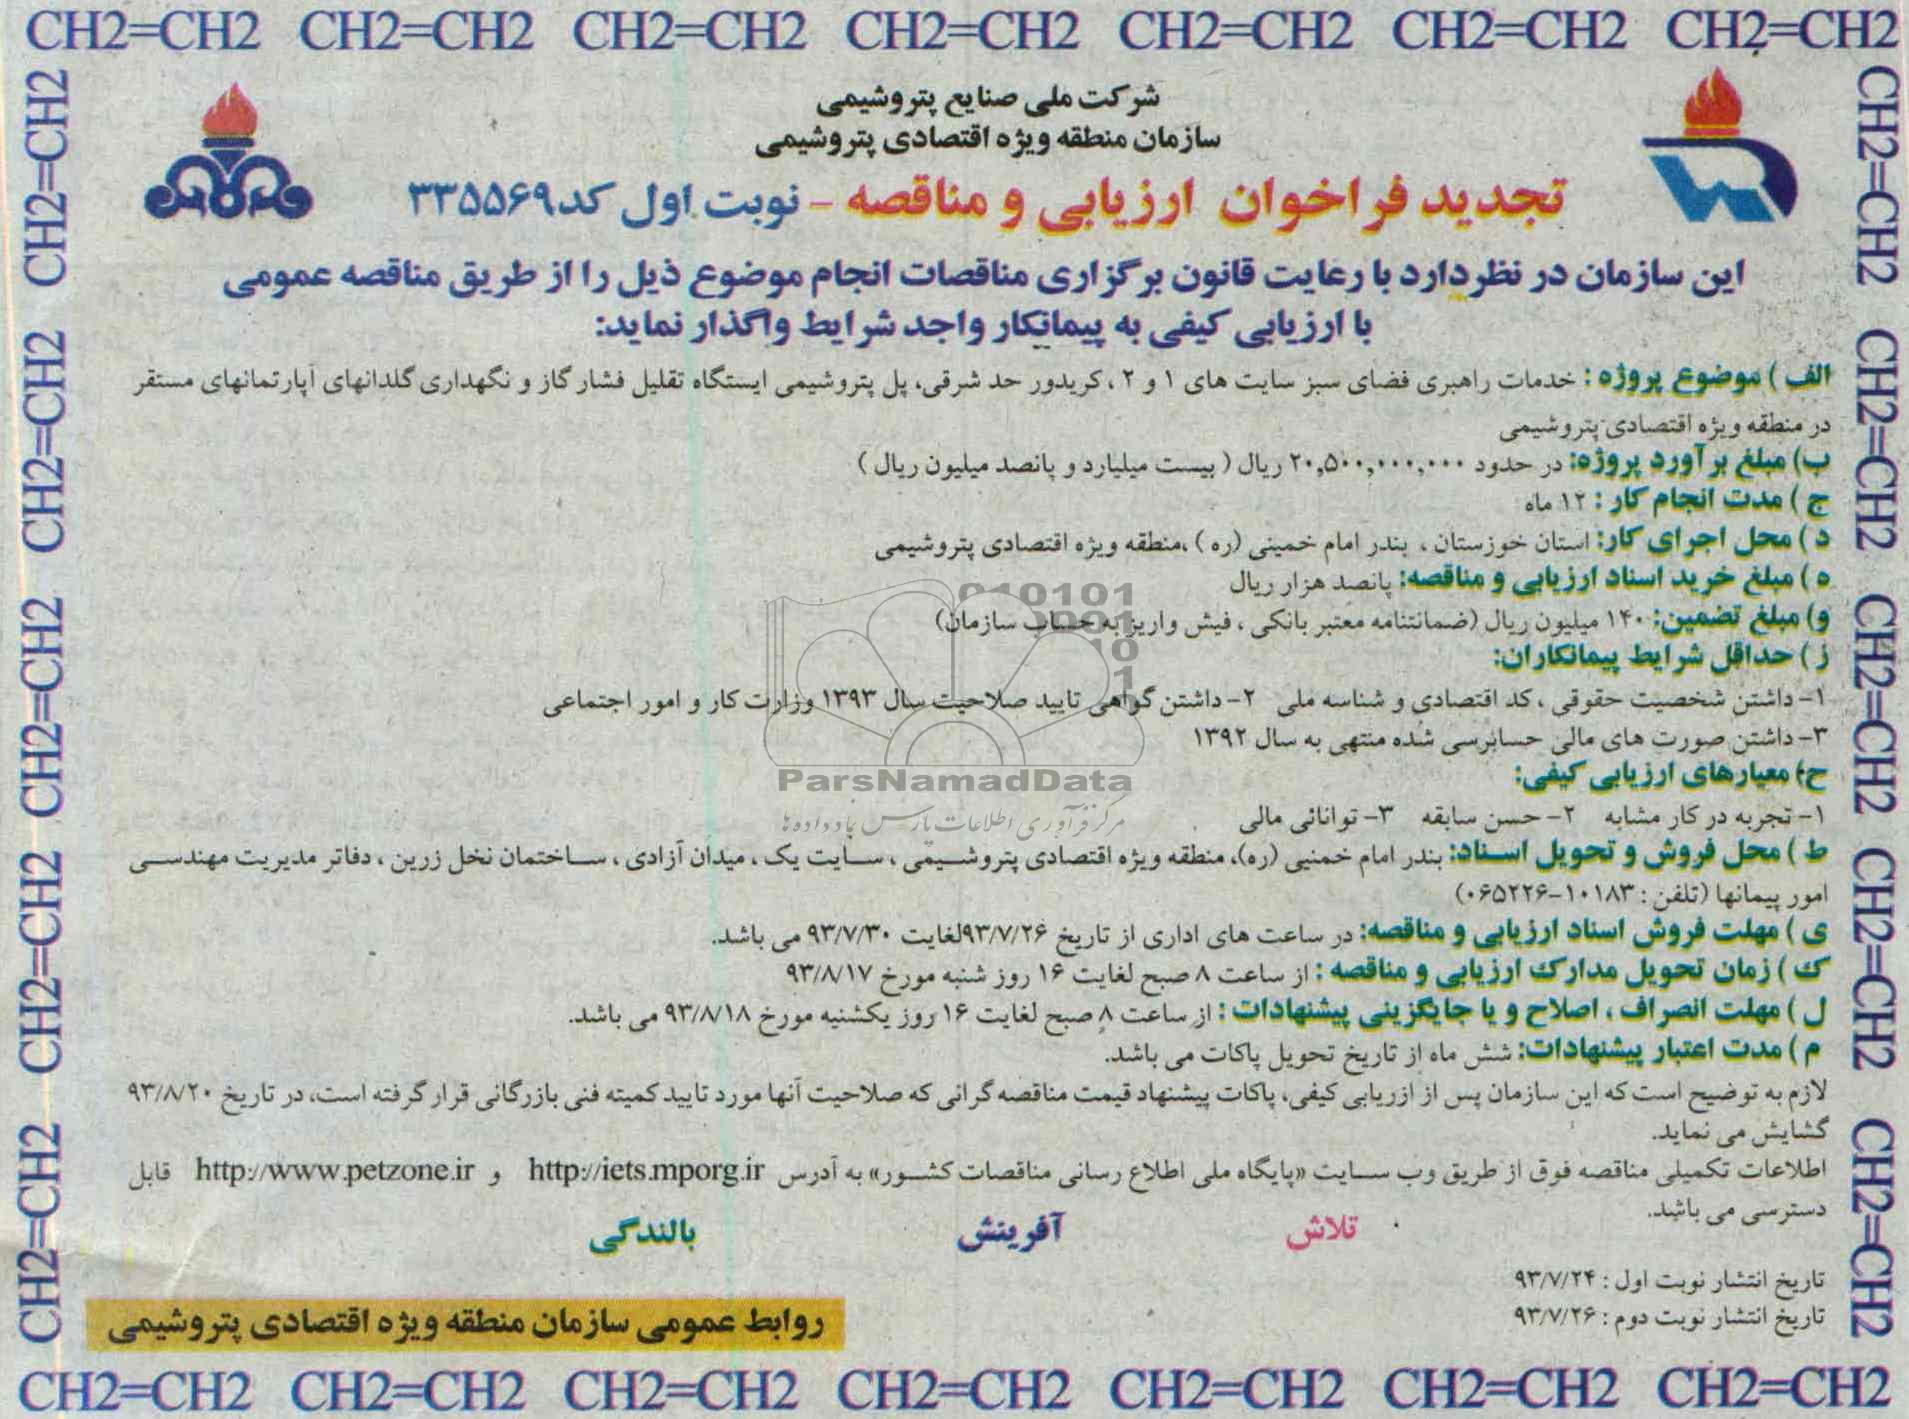 CH2=CH2 CH2=CH2 CH2=CH2 CH2=CH2 CH2=CH2 CH2=CH2 CH2=CH2
شرکت ملی صنایع پتروشیمی
سازمان منطقه ویژه اقتصادی پتروشیمی
تجدید فراخوان ارزیابی و مناقصه - نوبت اول کد ۳۳۵۵۶۹
این سازمان در نظر دارد با رعایت قانون برگزاری مناقصات انجام موضوع ذیل را از طریق مناقصه عمومی
با ارزیابی کیفی به پیمانکار واجد شرایط واگذار نماید:
الف ) موضوع پروژه : خدمات راهبری فضای سبز سایت های ۱ و ۲ ، کریدور حد شرقی، پل پتروشیمی ایستگاه تقلیل فشار گاز و نگهداری گلدانهای آپارتمانهای مستقر
در منطقه ویژه اقتصادی پتروشیمی
ب) مبلغ برآورد پروژه: در حدود ۲۰,۵۰۰,۰۰۰,۰۰۰ ریال ( بیست میلیارد و پانصد میلیون ریال )
ج ) مدت انجام کار : ۱۲ ماه
د ) محل اجرای کار: استان خوزستان ، بندر امام خمینی (ره ) ،منطقه ویژه اقتصادی پتروشیمی
ه ) مبلغ خرید اسناد ارزیابی و مناقصه: پانصد هزار ریال
و) مبلغ تضمین: ۱۴۰ میلیون ریال (ضمانتنامه معتبر بانکی ، فیش واریز به حساب سازمان)
ز ) حداقل شرایط پیمانکاران:
۱- داشتن شخصیت حقوقی ، کد اقتصادی و شناسه ملی ۲- داشتن گواهی تایید صلاحیت سال ۱۳۹۳ وزارت کار و امور اجتماعی
۳- داشتن صورت های مالی حسابرسی شده منتهی به سال ۱۳۹۲
ح) معیارهای ارزیابی کیفی:
۱- تجربه در کار مشابه ۲- حسن سابقه ۳- توانائی مالی
ط ) محل فروش و تحویل اسناد: بندر امام خمنیی (ره)، منطقه ویژه اقتصادی پتروشیمی ، سایت یک ، میدان آزادی ، ساختمان نخل زرین ، دفاتر مدیریت مهندسی
امور پیمانها (تلفن : ۱۰۱۸۳-۰۶۵۲۲۶)
ی ) مهلت فروش اسناد ارزیابی و مناقصه: در ساعت های اداری از تاریخ ۹۳/۷/۲۶لغایت ۹۳/۷/۳۰ می باشد.
ک ) زمان تحویل مدارک ارزیابی و مناقصه : از ساعت ۸ صبح لغایت ۱۶ روز شنبه مورخ ۹۳/۸/۱۷
ل ) مهلت انصراف ، اصلاح و یا جایگزینی پیشنهادات : از ساعت ۸ صبح لغایت ۱۶ روز یکشنبه مورخ ۹۳/۸/۱۸ می باشد.
م ) مدت اعتبار پیشنهادات: شش ماه از تاریخ تحویل پاکات می باشد.
لازم به توضیح است که این سازمان پس از ازریابی کیفی، پاکات پیشنهاد قیمت مناقصه گرانی که صلاحیت آنها مورد تایید کمیته فنی بازرگانی قرار گرفته است، در تاریخ ۹۳/۸/۲۰
گشایش می نماید.
اطلاعات تکمیلی مناقصه فوق از طریق وب سایت «پایگاه ملی اطلاع رسانی مناقصات کشور» به آدرس http://iets.mporg.ir و http://www.petzone.ir قابل
دسترسی می باشد.
تلاش آفرینش بالندگی
تاریخ انتشار نوبت اول : ۹۳/۷/۲۴
تاریخ انتشار نوبت دوم : ۹۳/۷/۲۶
روابط عمومی سازمان منطقه ویژه اقتصادی پتروشیمی
CH2=CH2 CH2=CH2 CH2=CH2 CH2=CH2 CH2=CH2 CH2=CH2 CH2=CH2
CH2=CH2 CH2=CH2 CH2=CH2 CH2=CH2 CH2=CH2
CH2=CH2 CH2=CH2 CH2=CH2 CH2=CH2 CH2=CH2
ParsNamadData
مرکز فرآوری اطلاعات پارس نماد داده ها